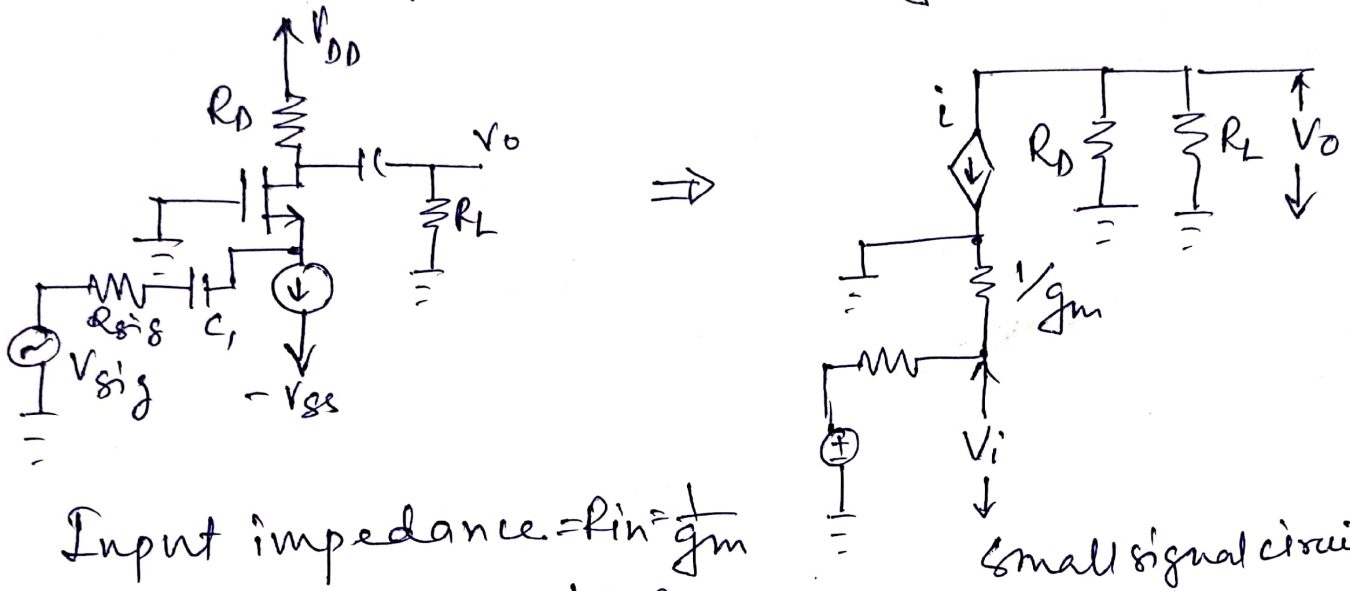 V_DD
R_D
V_o
R_L
R_sig
C_1
V_sig
- V_SS
⇒
i
R_D
R_L
V_o
1/g_m
±
V_i
Input impedance = Rin = 1/g_m
small signal circui